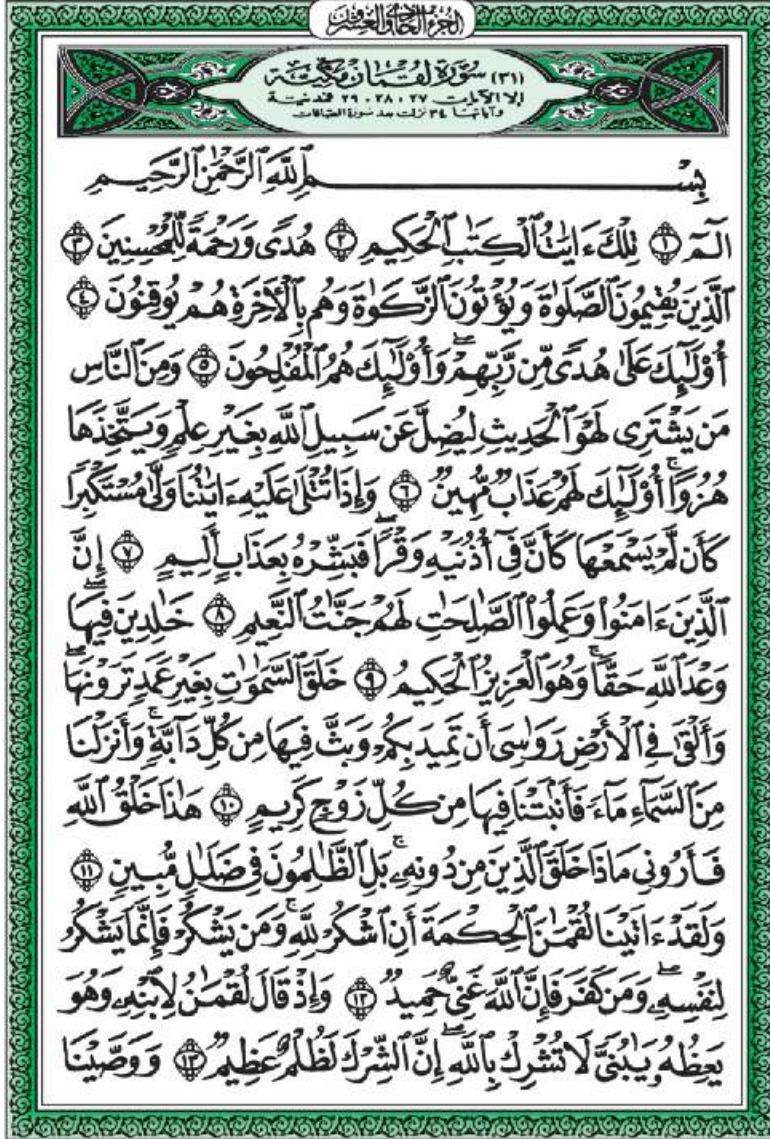 الجزء الحادي والعشرون
(٣١) سُورَة لُقْمَان مَكِّيَّة
إلا الآيات ٢٧ ، ٢٨ ، ٢٩ فمدنية
وآياتها ٣٤ نزلت بعد سورة الصافات
بِسْمِ ٱللَّهِ ٱلرَّحْمَٰنِ ٱلرَّحِيمِ
الٓمٓ ١ تِلْكَ ءَايَٰتُ ٱلْكِتَٰبِ ٱلْحَكِيمِ ٢ هُدًى وَرَحْمَةً لِّلْمُحْسِنِينَ ٣
ٱلَّذِينَ يُقِيمُونَ ٱلصَّلَوٰةَ وَيُؤْتُونَ ٱلزَّكَوٰةَ وَهُم بِٱلْأَخِرَةِ هُمْ يُوقِنُونَ ٤
أُوْلَٰٓئِكَ عَلَىٰ هُدًى مِّن رَّبِّهِمْ ۖ وَأُوْلَٰٓئِكَ هُمُ ٱلْمُفْلِحُونَ ٥ وَمِنَ ٱلنَّاسِ
مَن يَشْتَرِى لَهْوَ ٱلْحَدِيثِ لِيُضِلَّ عَن سَبِيلِ ٱللَّهِ بِغَيْرِ عِلْمٍ وَيَتَّخِذَهَا
هُزُوًا ۚ أُوْلَٰٓئِكَ لَهُمْ عَذَابٌ مُّهِينٌ ٦ وَإِذَا تُتْلَىٰ عَلَيْهِ ءَايَٰتُنَا وَلَّىٰ مُسْتَكْبِرًا
كَأَن لَّمْ يَسْمَعْهَا كَأَنَّ فِىٓ أُذُنَيْهِ وَقْرًا ۖ فَبَشِّرْهُ بِعَذَابٍ أَلِيمٍ ٧ إِنَّ
ٱلَّذِينَ ءَامَنُوا۟ وَعَمِلُوا۟ ٱلصَّٰلِحَٰتِ لَهُمْ جَنَّٰتُ ٱلنَّعِيمِ ٨ خَٰلِدِينَ فِيهَا ۖ
وَعْدَ ٱللَّهِ حَقًّا ۚ وَهُوَ ٱلْعَزِيزُ ٱلْحَكِيمُ ٩ خَلَقَ ٱلسَّمَٰوَٰتِ بِغَيْرِ عَمَدٍ تَرَوْنَهَا ۖ
وَأَلْقَىٰ فِى ٱلْأَرْضِ رَوَٰسِىَ أَن تَمِيدَ بِكُمْ وَبَثَّ فِيهَا مِن كُلِّ دَآبَّةٍ ۚ وَأَنزَلْنَا
مِنَ ٱلسَّمَآءِ مَآءً فَأَنۢبَتْنَا فِيهَا مِن كُلِّ زَوْجٍ كَرِيمٍ ١٠ هَٰذَا خَلْقُ ٱللَّهِ
فَأَرُونِى مَاذَا خَلَقَ ٱلَّذِينَ مِن دُونِهِۦ ۚ بَلِ ٱلظَّٰلِمُونَ فِى ضَلَٰلٍ مُّبِينٍ ١١
وَلَقَدْ ءَاتَيْنَا لُقْمَٰنَ ٱلْحِكْمَةَ أَنِ ٱشْكُرْ لِلَّهِ ۚ وَمَن يَشْكُرْ فَإِنَّمَا يَشْكُرُ
لِنَفْسِهِۦ ۖ وَمَن كَفَرَ فَإِنَّ ٱللَّهَ غَنِىٌّ حَمِيدٌ ١٢ وَإِذْ قَالَ لُقْمَٰنُ لِٱبْنِهِۦ وَهُوَ
يَعِظُهُۥ يَٰبُنَىَّ لَا تُشْرِكْ بِٱللَّهِ ۖ إِنَّ ٱلشِّرْكَ لَظُلْمٌ عَظِيمٌ ١٣ وَوَصَّيْنَا